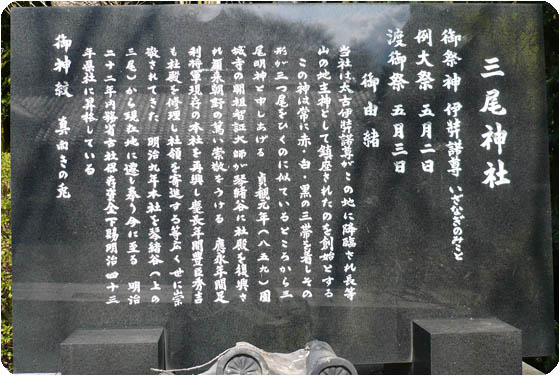 三尾神社
御祭神 伊弉諾尊 いざなぎのみこと
例大祭 五月二日
渡御祭 五月三日
御由緒
当社は太古伊弉諾尊がこの地に降臨され長等
山の地主神として鎮座されたのを創始とする
この神は常に赤・白・黒の三帯を着しその
形が三つ尾をひくのに似ているところから三
尾明神と申しあげる 貞観元年（八五九）園
城寺の開祖智証大師が琴緒谷に社殿を復興さ
れ爾来朝野の篤い崇敬をうける 應永年間足
利将軍現在の本社を再興し慶長年間豊臣秀吉
も社殿を修理し社領を寄進する等広く世に崇
敬されてきた 明治九年本社を琴緒谷（上の
三尾）から現在地に遷し奉り今に至る 明治
二十二年内務省古社保存資金下賜明治四十三
年県社に昇格している
御神紋 真向きの兎